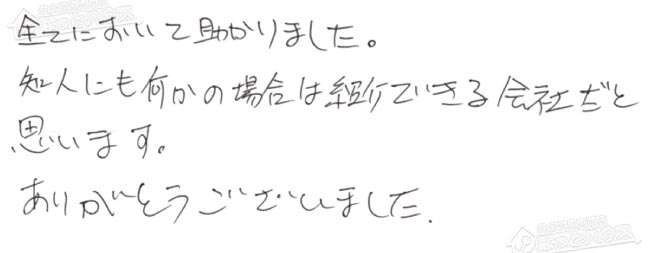 全てにおいて助かりました。
知人にも何かの場合は紹介できる会社だと
思います。
ありがとうございました.